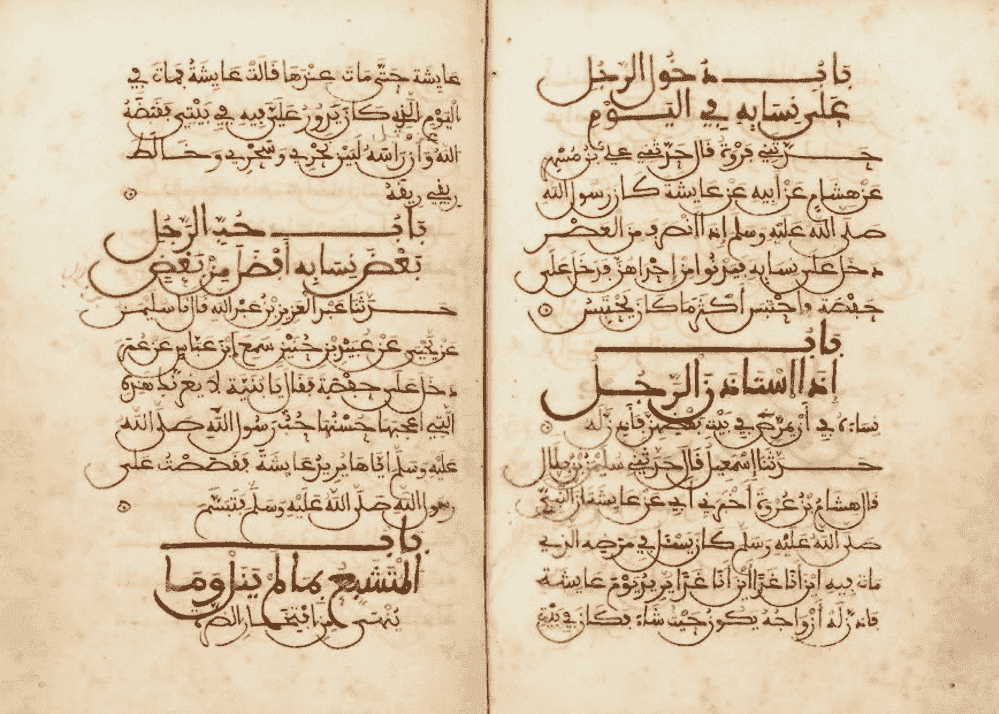 باب دخول الرجل
على نسايه في اليوم
حدثني فروة قال حدثني علي بن مسهر
عن هشام عن أبيه عن عايشة كان رسول الله
صلى الله عليه وسلم إذا انصرف من العصر
دخل على نسايه فيدنوا من إحداهن فدخل على
حفصة فاحتبس أكثر ما كان يحتبس
باب
إذا استاذن الرجل
نساءه في أن يمرض في بيت بعضهن فأذن له
حدثنا إسمعيل قال حدثني سليمن بن بلال
قال هشام بن عروة أخبرني أبي عن عايشة أن النبي
صلى الله عليه وسلم كان يسئل في مرضه الذي
مات فيه اين أنا غدا أين أنا غدا يريد يوم عايشة
فاذن له أزواجه يكون حيث شاء فكان في بيت
عايشة حتى مات عندها قالت عايشة فمات في
اليوم الذي كان يدور علي فيه في بيتي فقبضه
الله وأن رأسه لبين نحري وسحري وخالط
ريقي ريقه
باب حب الرجل
بعض نسايه أفضل من بعض
حدثنا عبد العزيز بن عبد الله قال نا سليمن
عن يحيى عن عبيد بن حنين سمع ابن عباس عن عمر
دخل على حفصة فقال يا بنية لا يغرنك هذه
التي أعجبها حسنها حب رسول الله صلى الله
عليه وسلم اياها يريد عايشة فقصصت على
رسول الله صلى الله عليه وسلم فتبسم
باب
المتشبع بما لم ينل وما
ينهى من